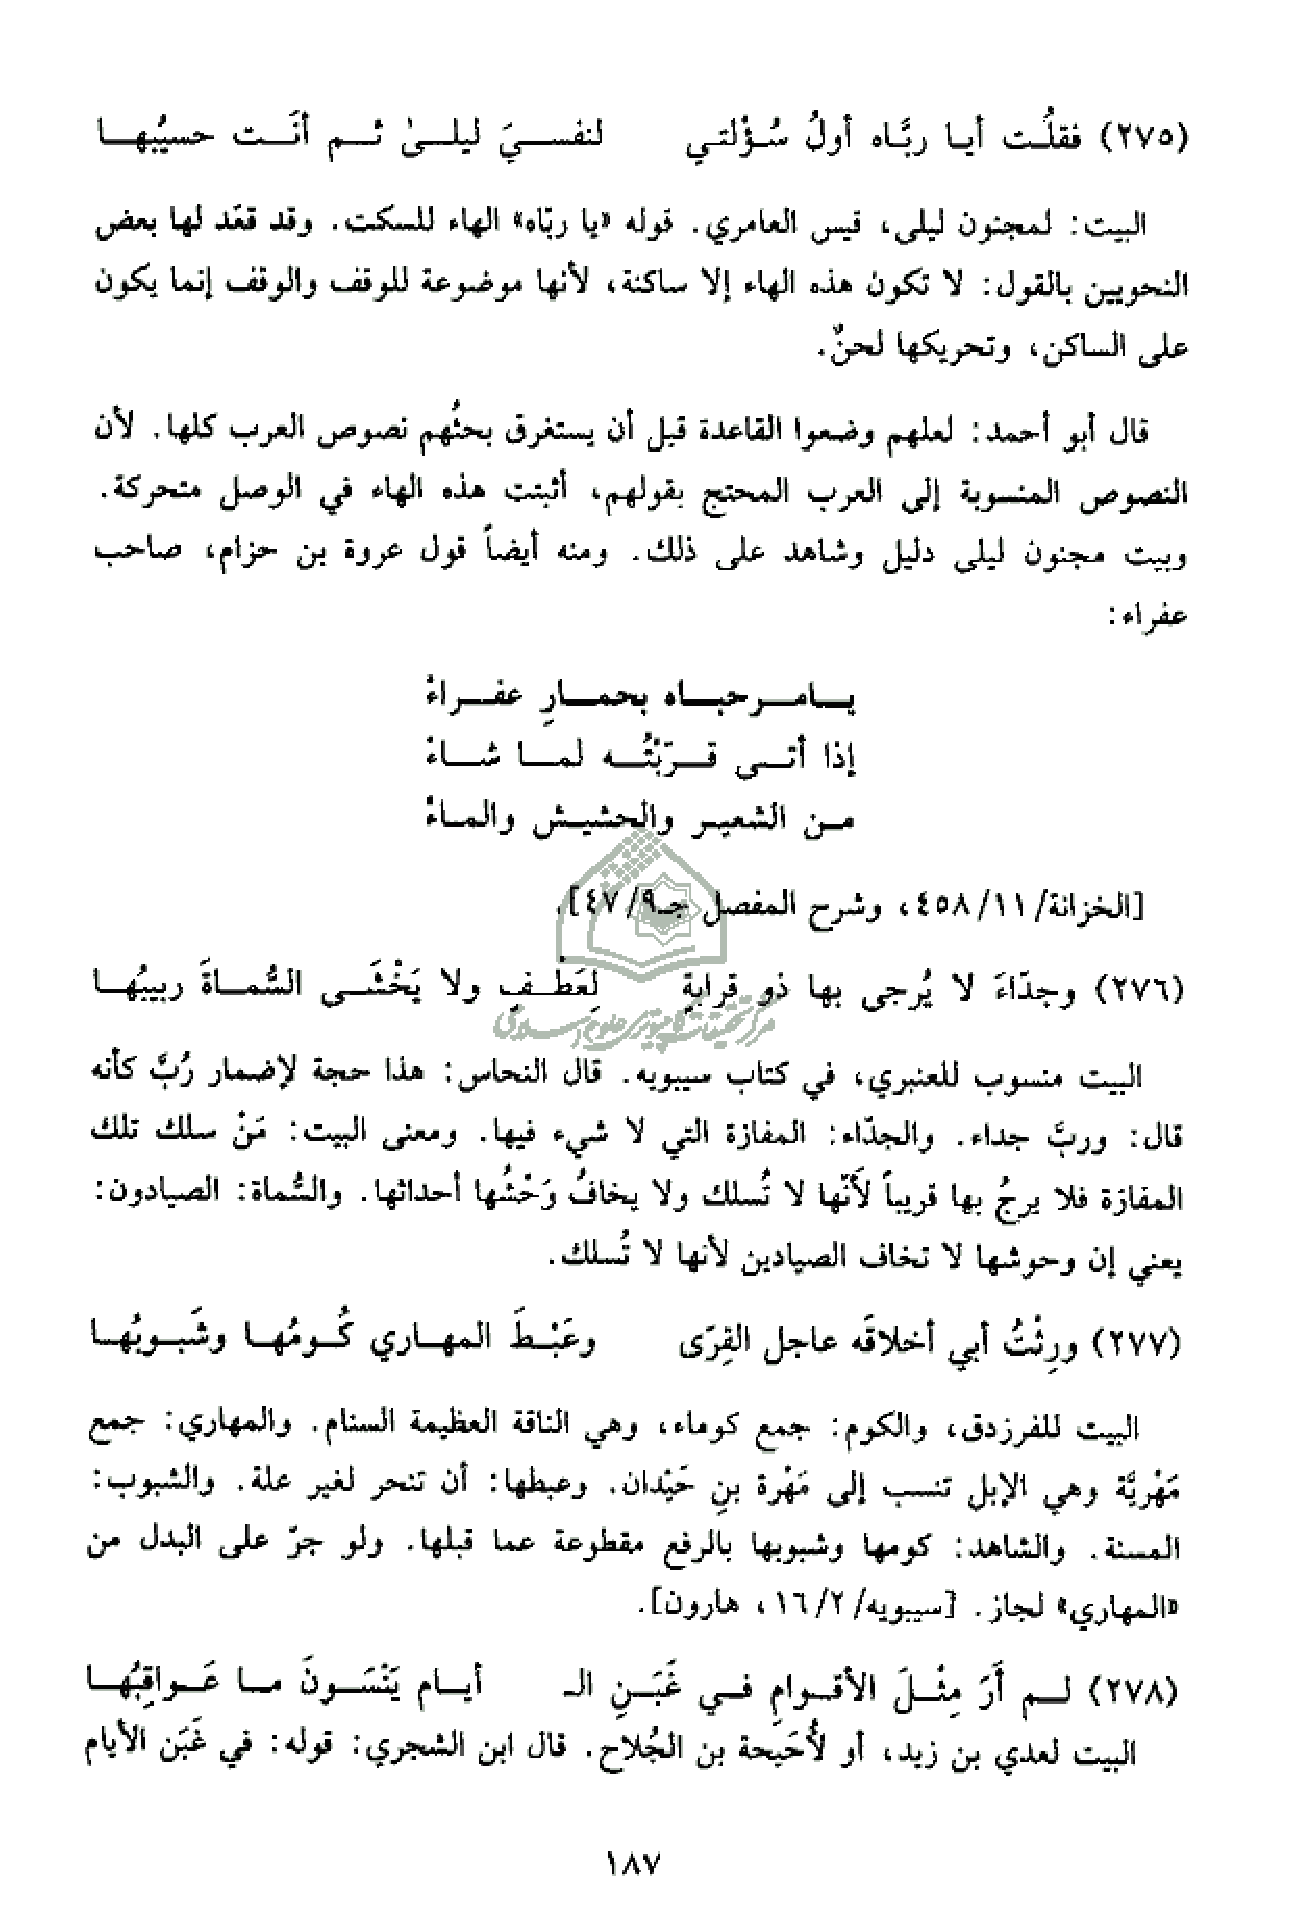 (٢٧٥) فقلُت أيا ربَّاه أولُ سُؤْلتي لنفسيَ ليلىٰ ثم أنَت حسيُبها
البيت: لمجنون ليلى، قيس العامري. قوله «يا ربّاه» الهاء للسكت. وقد قعّد لها بعض
النحويين بالقول: لا تكون هذه الهاء إلا ساكنة، لأنها موضوعة للوقف والوقف إنما يكون
على الساكن، وتحريكها لحنٌ.
قال أبو أحمد: لعلهم وضعوا القاعدة قبل أن يستغرق بحثُهم نصوص العرب كلها. لأن
النصوص المنسوبة إلى العرب المحتج بقولهم، أثبتت هذه الهاء في الوصل متحركة.
وبيت مجنون ليلى دليل وشاهد على ذلك. ومنه أيضاً قول عروة بن حزام، صاحب
عفراء:
يامرحباه بحمارِ عفراءْ
إذا أتى قرّبْتُه لما شاءْ
من الشعير والحشيش والماءْ
[الخزانة/١١/٤٥٨، وشرح المفصل جـ٩/٤٧].
مركز تحقيقات كامپيوتری علوم اسلامی
(٢٧٦) وجدّاءَ لا يُرجى بها ذو قرابةٍ لِعَطْفٍ ولا يَخْشَى السُّماةَ ربيبُها
البيت منسوب للعنبري، في كتاب سيبويه. قال النحاس: هذا حجة لإضمار رُبَّ كأنه
قال: وربَّ جداء. والجدّاء: المفازة التي لا شيء فيها. ومعنى البيت: مَنْ سلك تلك
المفازة فلا يرجُ بها قريباً لأَنّها لا تُسلك ولا يخافُ وَحْشُها أحداثها. والسُّماة: الصيادون:
يعني إن وحوشها لا تخاف الصيادين لأنها لا تُسلك.
(٢٧٧) ورِثْتُ أبي أخلاقَه عاجل القِرَى وعَبْطَ المهاري كُومُها وشَبوبُها
البيت للفرزدق، والكوم: جمع كوماء، وهي الناقة العظيمة السنام. والمهاري: جمع
مَهْريَّة وهي الإبل تنسب إلى مَهْرة بنِ حَيْدان. وعبطها: أن تنحر لغير علة. والشبوب:
المسنة. والشاهد: كومها وشبوبها بالرفع مقطوعة عما قبلها. ولو جرّ على البدل من
«المهاري» لجاز. [سيبويه/٢/١٦، هارون].
(٢٧٨) لم أَرَ مِثْلَ الأقوامِ في غَبَنِ الـ أيام يَنْسَونَ ما عَواقِبُها
البيت لعدي بن زيد، أو لأُحَيحة بن الجُلاح. قال ابن الشجري: قوله: في غَبَن الأيام
١٨٧